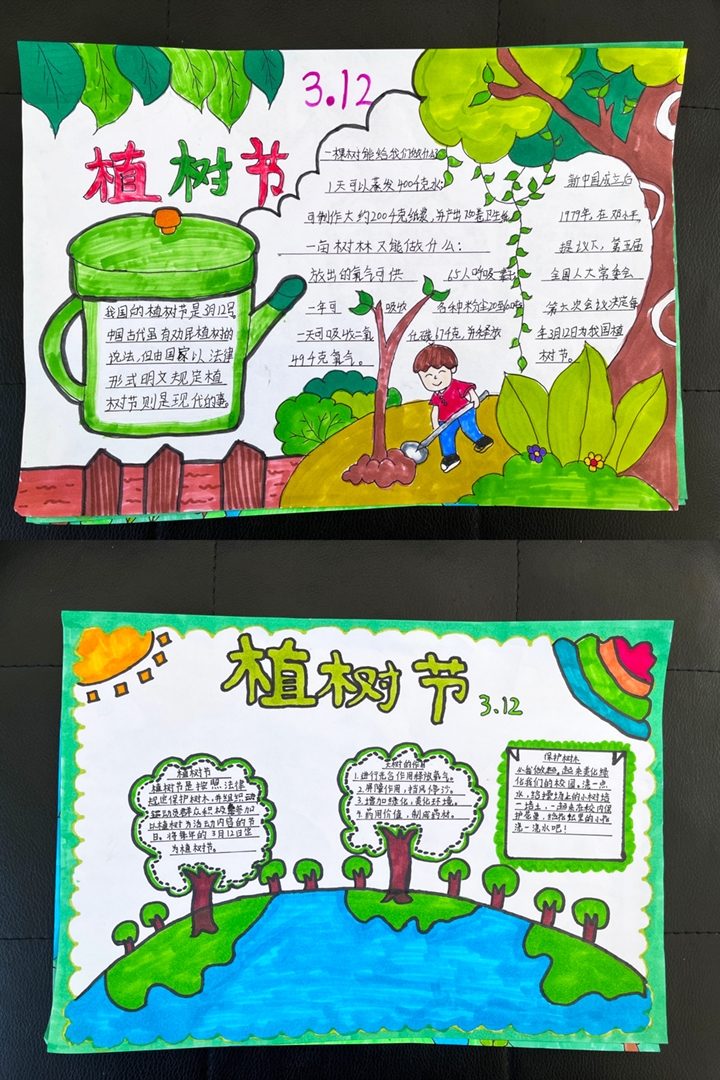 3.12
植树节
我国的植树节是3月12日。
中国古代虽有劝民植树的
说法,但由国家以法律
形式明文规定植
树节则是现代的事。
一棵树能给我们做什么
1天可以蒸发400千克水
可制作大约200千克纸浆,并产出
一亩树林又能做什么:
放出的氧气可供 65人呼吸
一年可 吸收 各种粉尘20至60吨
一天可吸收二氧 化碳67千克,并释放
49千克氧气。
新中国成立后
1979年,在邓小平
提议下,第五届
全国人大常委会
第六次会议决定每
年3月12日为我国植
树节。
植树节
3.12
植树节
植树节是按照法律
规定保护树木,并组织
动员群众积极参加
以植树为活动内容的节
日。将每年的3月12日定
为植树节。
树的作用
1.进行光合作用释放氧气。
2.屏障作用,挡风停沙。
3.增加绿化,美化环境。
4.药用价值,制成药材。
保护树木
起来美化绿
化我们的校园。浇一点
水,给操场上的小树培
一培土,一起来在校内保
护花草,给花坛里的小花
浇一浇水吧!